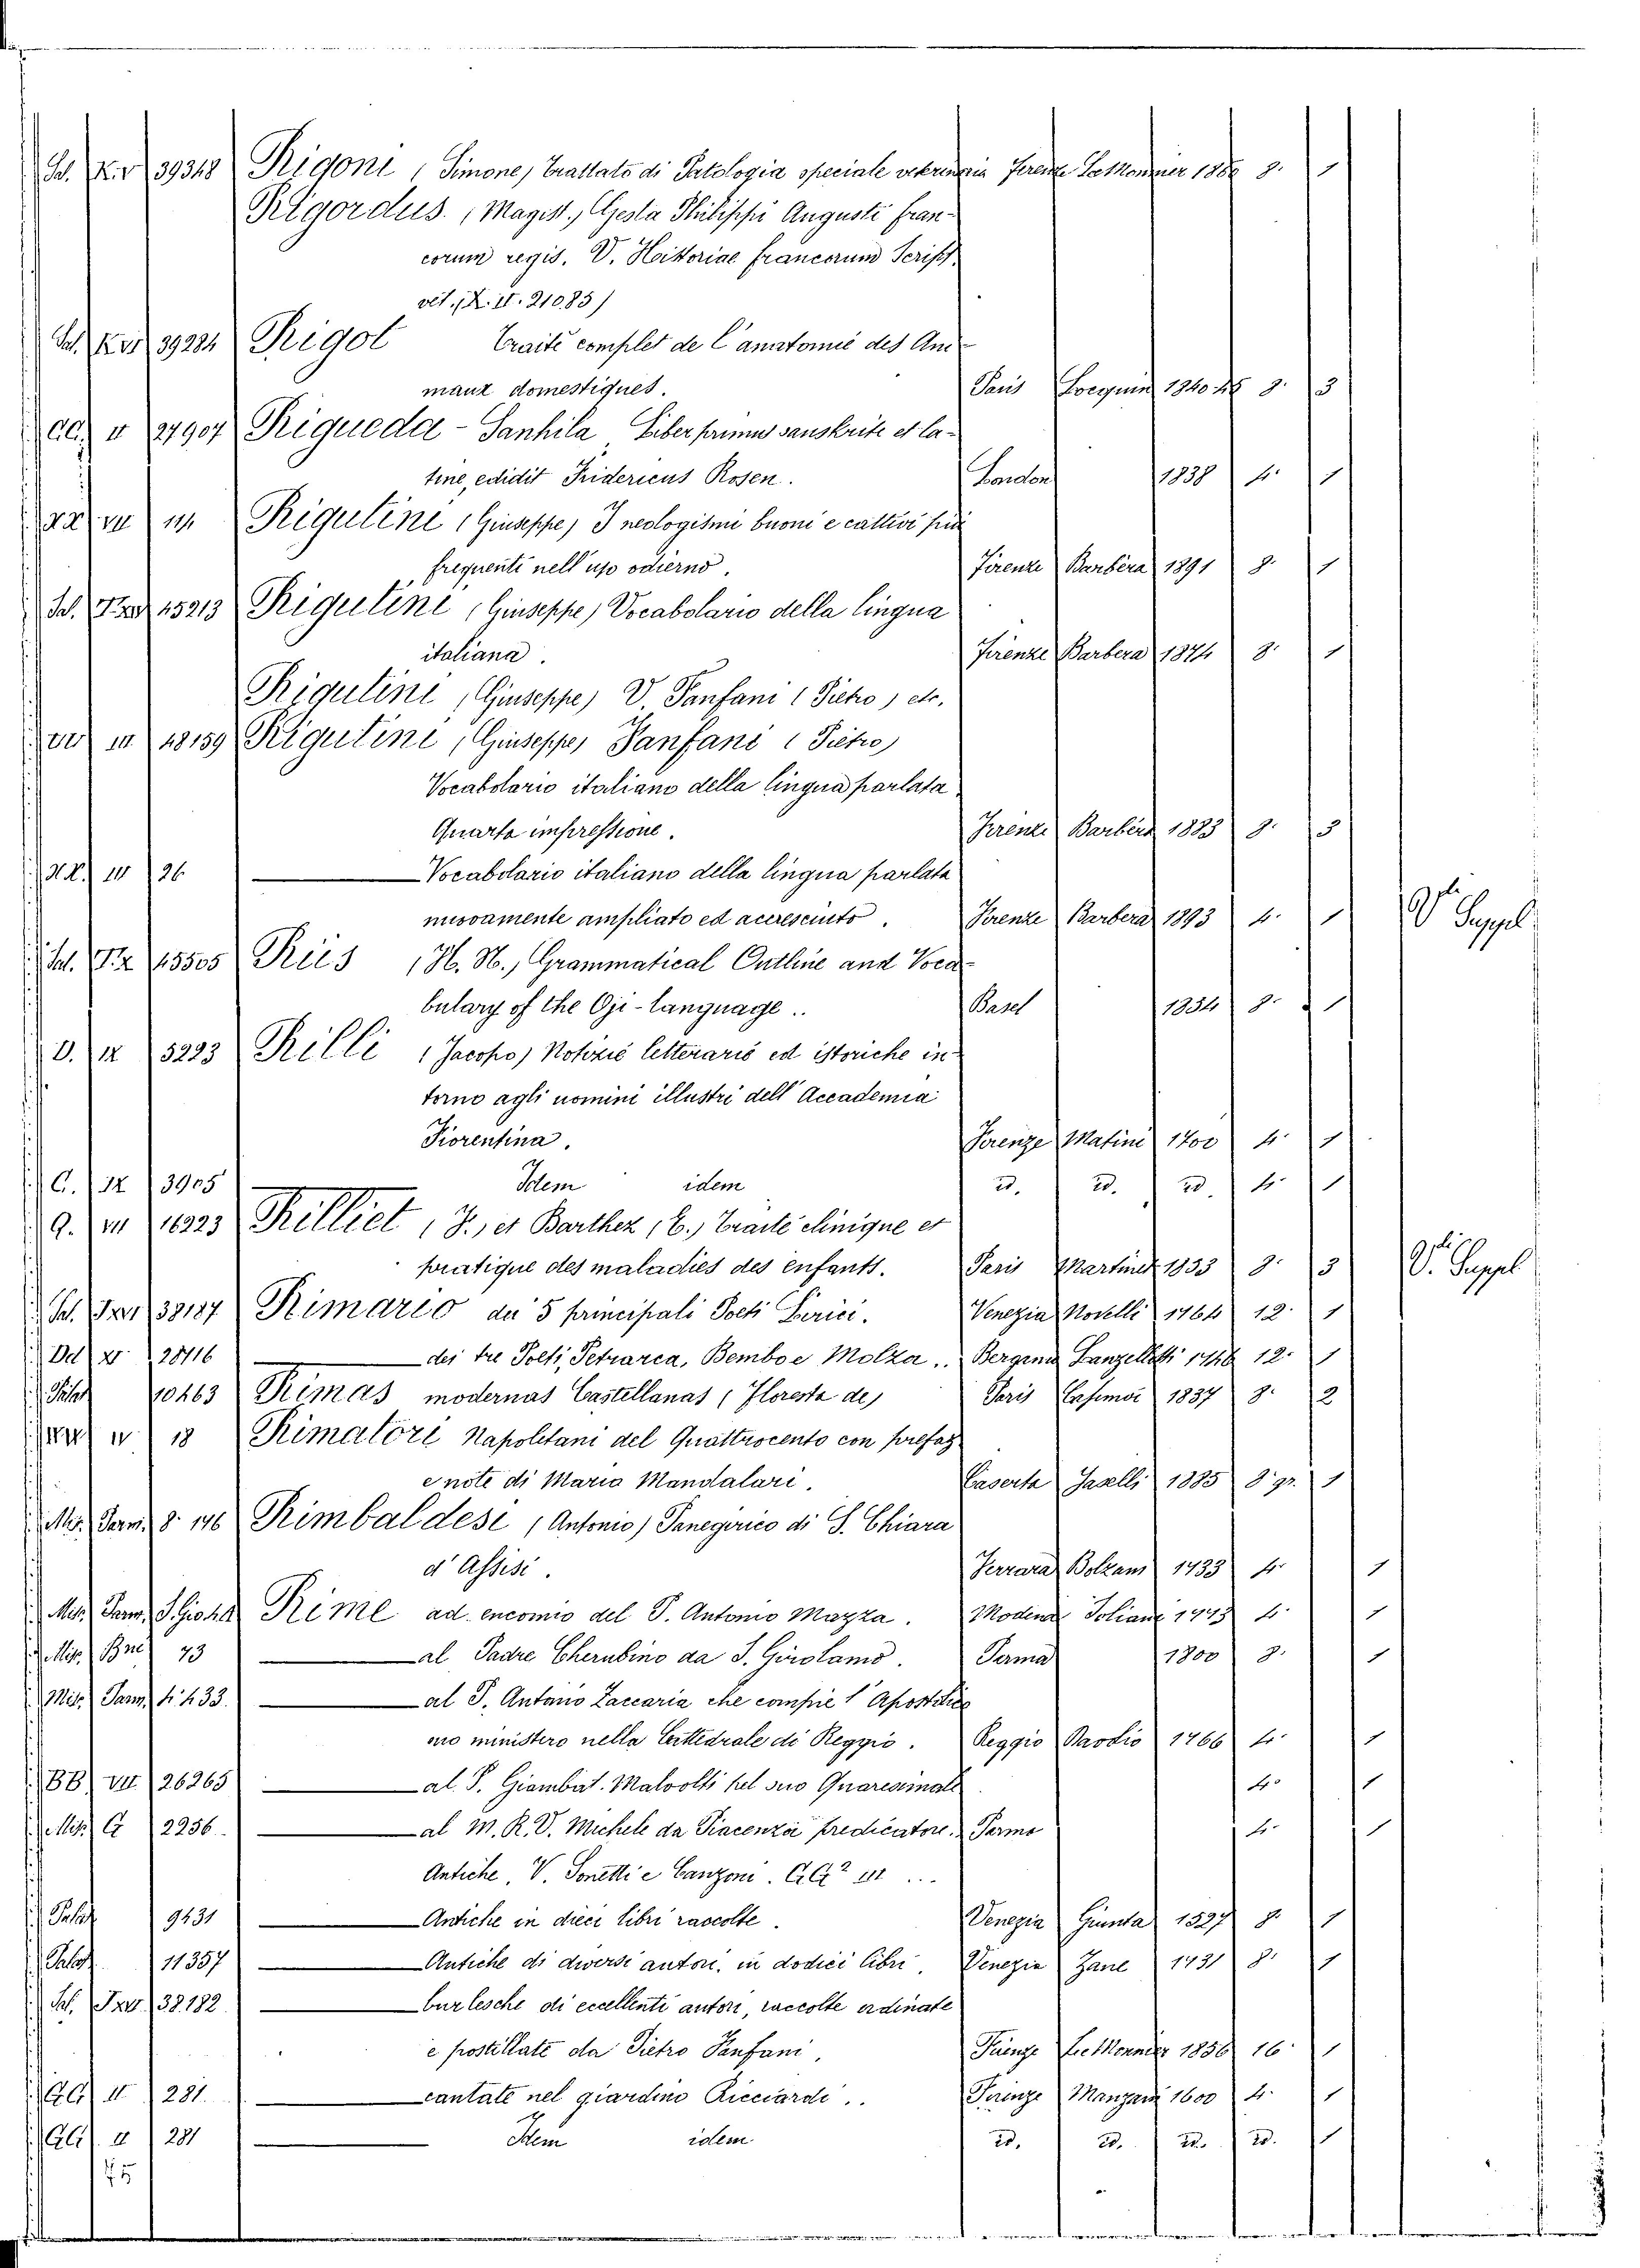 39348 Rigoni (Simone) Trattato di Patologia speciale veterinaria Firenze Le Monnier 8. 1
Rigordus. (Magist.) Gesta Philippi Augusti fran-
corum regis. V. Historiae francorum Script.
vet. (X. II. 21085)
39284 Rigot Traité complet de l'anatomie des Ani-
maux domestiques. Paris 8. 3
II 27907 Rigueda-Sanhila, Liber primus sanskrite et la-
tine, edidit Fridericus Rosen. London 1838 4. 1
VII Rigutini (Giuseppe) I neologismi buoni e cattivi più
frequenti nell'uso odierno. Firenze Barbèra 1891 8. 1
15213 Rigutini (Giuseppe) Vocabolario della lingua
italiana. Firenze Barbera 1874 8. 1
Rigutini (Giuseppe) V. Fanfani (Pietro) etc.
III 18159 Rigutini (Giuseppe) Fanfani (Pietro)
Vocabolario italiano della lingua parlata
Quarta impressione. Firenze Barbèra 1883 8. 3
III 26 Vocabolario italiano della lingua parlata
nuovamente ampliato ed accresciuto. Firenze Barbera 1893 4. 1 V. Suppl.
15505 Riis (H. N.) Grammatical Outline and Voca-
bulary of the Oji-language. Basel 1854 8. 1
D. IX 5223 Rilli (Jacopo) Notizie letterarie ed istoriche in-
torno agli uomini illustri dell'Accademia
Fiorentina. Firenze Matini 1700 4. 1
C. IX 3905 Idem idem id. id. id. 4. 1
Q. VII 16323 Rilliet (F.) et Barthez (E.) Traité clinique et
pratique des maladies des enfants. Paris Martinet 1853 8. 3 V. Suppl
38187 Rimario dei 5 principali Poeti Lirici. Venezia Novelli 1764 12. 1
28716 dei tre Poeti, Petrarca, Bembo e Molza. Bergamo Lanzelotti 12. 1
10463 Rimas modernas Castellanas (Floresta de) Paris Casimoi 1837 8. 2
IV 18 Rimatori Napoletani del Quattrocento con prefaz
e note di Mario Mandalari. Caserta Jaselli 1885 8 gr. 1
Mis. Parm. 8. 146 Rimbaldesi (Antonio) Panegirico di S. Chiara
d'Assisi. Ferrara Bolzani 1733 4. 1
Mis. Parm. Rime ad encomio del P. Antonio Mazza. Modena Soliani 4. 1
Mis. 73 al Padre Cherubino da S. Girolamo. Parma 1800 8. 1
Mis. Parm. 4. 433. al P. Antonio Zaccaria che compie l'Apostolico
suo ministero nella Cattedrale di Reggio. Reggio 1766 4. 1
BB VII 26265 al P. Giambat. Malvolti pel suo Quaresimale 4. 1
2256. al M. R. P. Michele da Piacenza predicatore. Parma 4. 1
Antiche, V. Sonetti e Canzoni.
Palat 9431 Antiche in dieci libri raccolte. Venezia Giunta 1527 8. 1
Palat. 11357 Antiche di diversi autori, in dodici libri. Venezia Zane 1731 8. 1
38.182 burlesche di eccellenti autori, raccolte ordinate
e postillate da Pietro Fanfani. Firenze Le Monnier 1856 16. 1
II 281. cantate nel giardino Riccardi. Firenze Manzani 1600 4. 1
II 281 Idem idem id. id. id. id. 1